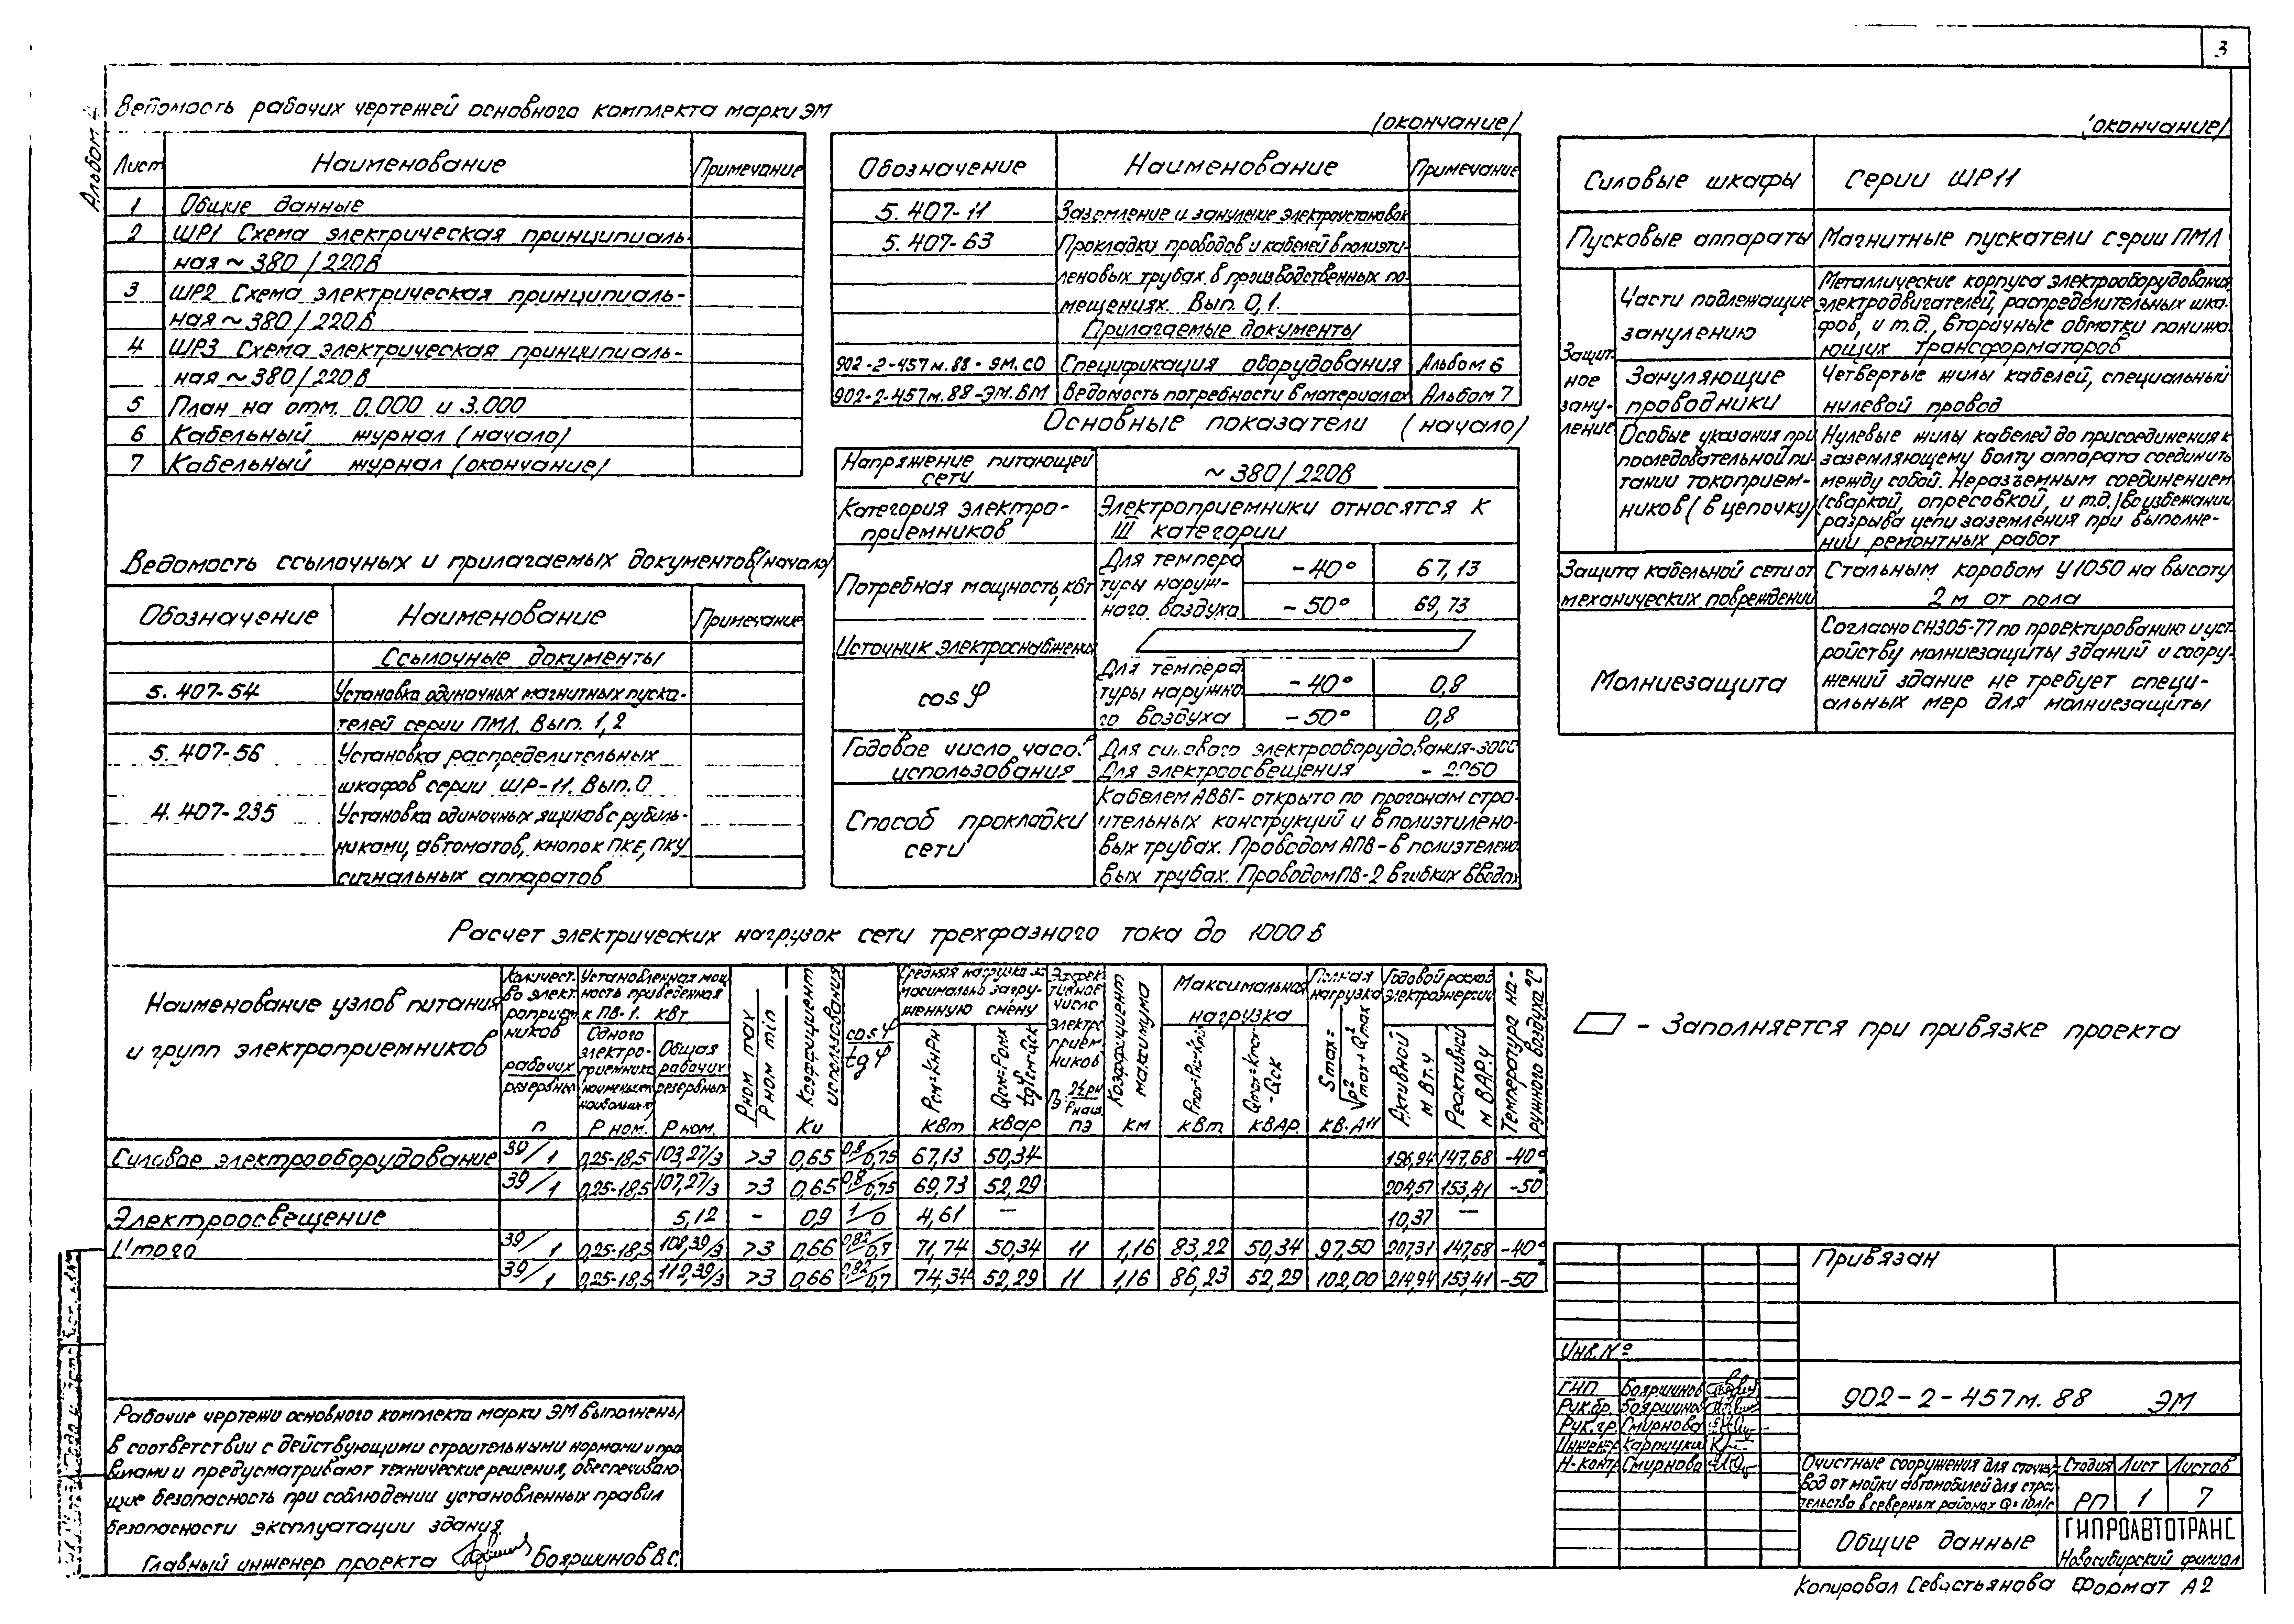 3
Альбом
Ведомость рабочих чертежей основного комплекта марки ЭМ
Лист Наименование Примечание
1 Общие данные
2 ШР1 Схема электрическая принципиаль-
ная ~ 380/220В
3 ШР2 Схема электрическая принципиаль-
ная ~ 380/220В
4 ШР3 Схема электрическая принципиаль-
ная ~ 380/220В
5 План на отм. 0.000 и 3.000
6 Кабельный журнал (начало)
7 Кабельный журнал (окончание)
Ведомость ссылочных и прилагаемых документов (начало)
Обозначение Наименование Примечание
Ссылочные документы
5.407-54 Установка одиночных магнитных пуска-
телей серии ПМЛ. Вып. 1,2
5.407-56 Установка распределительных
шкафов серии ШР-11. Вып. 0
4.407-235 Установка одиночных ящиков с рубиль-
никами, автоматов, кнопок ПКЕ, ПКУ
сигнальных аппаратов
(окончание)
Обозначение Наименование Примечание
5.407-11 Заземление и зануление электроустановок
5.407-63 Прокладка проводов и кабелей в полиэти-
леновых трубах в производственных по-
мещениях. Вып. 0,1.
Прилагаемые документы
902-2-457м.88-ЭМ.СО Спецификация оборудования Альбом 6
902-2-457м.88-ЭМ.ВМ Ведомость потребности в материалах Альбом 7
Основные показатели (начало)
Напряжение питающей сети ~ 380/220В
Категория электро-
приемников
Электроприемники относятся к
III категории
Потребная мощность, квт
Для темпера
туры наруж-
ного воздуха
-40° 67,13
-50° 69,73
Источник электроснабжения
cos φ
Для темпера
туры наружно
го воздуха
-40° 0,8
-50° 0,8
Годовое число часов
использования
Для силового электрооборудования-
Для электроосвещения -
Способ прокладки
сети
Кабелем АВВГ- открыто по прогонам стро-
ительных конструкций и в полиэтилено-
вых трубах. Проводом АПВ-в полиэтелено
вых трубах. Проводом ПВ-2 в гибких вводах
(окончание)
Силовые шкафы Серии ШР11
Пусковые аппараты Магнитные пускатели серии ПМЛ
Защит-
ное
зану-
ление
Части подлежащие
занулению
Металлические корпуса электрооборудования,
электродвигателей, распределительных шка-
фов, и т.д., вторичные обмотки понижа-
ющих трансформаторов
Зануляющие
проводники
Четвертые жилы кабелей, специальный
нулевой провод
Особые указания при
последовательной пи-
тании токоприем-
ников (в цепочку)
Нулевые жилы кабелей до присоединения к
заземляющему болту аппарата соединить
между собой. Неразъемным соединением
(сваркой, опресовкой, и т.д.) во избежании
разрыва цепи заземления при выполне-
нии ремонтных работ
Защита кабельной сети от
механических повреждений
Стальным коробом У1050 на высоту
2 м от пола
Молниезащита
Согласно СН305-77 по проектированию и уст-
ройству молниезащиты зданий и соору-
жений здание не требует специ-
альных мер для молниезащиты
Расчет электрических нагрузок сети трехфазного тока до 1000 В
Наименование узлов питания
и групп электроприемников
Количест-
во элект
роприем
ников
рабочих
резервных
n
Установленная мощ
ность приведенная
к ПВ-1. квт
Одного
электро-
приемника
Р ном.
Общая
рабочих
резервных
Р ном.
Рном max
Рном min
Коэффициент
использования
Ки
cos φ
tg φ
Средняя нагрузка за
максимально загру-
женную смену
Рсм=КиРн
квт
квар
Эффек
тивное
число
электро
прием
ников
nэ
Коэффициент
максимума
км
Максимальная
нагрузка
квт
кВАР.
Полная
нагрузка
Smax=
√P²max+Q²max
кв.А
Годовой расход
электроэнергии
Активной
м Вт.ч
Реактивной
м ВАР.ч
Температура на-
ружного воздуха °С
Силовое электрооборудование 39/1 0,25-18,5 103,27/3 >3 0,65 0,8/0,75 67,13 50,34 196,94 147,68 -40°
39/1 0,25-18,5 107,27/3 >3 0,65 0,8/0,75 69,73 52,29 204,57 153,41 -50
Электроосвещение 5,12 - 0,9 1/0 4,61 — 10,37 —
Итого 39/1 0,25-18,5 108,39/3 >3 0,66 0,82/0,7 71,74 50,34 11 1,16 83,22 50,34 97,50 207,31 147,68 -40°
39/1 0,25-18,5 112,39/3 >3 0,66 0,82/0,7 74,34 52,29 11 1,16 86,23 52,29 102,00 214,94 153,41 -50°
- Заполняется при привязке проекта
Рабочие чертежи основного комплекта марки ЭМ выполнены
в соответствии с действующими строительными нормами и пра
вилами и предусматривают технические решения, обеспечиваю-
щие безопасность при соблюдении установленных правил
безопасности эксплуатации здания.
Главный инженер проекта Бояршинов В.С.
Привязан
Инв. №
ГИП Бояршинов
Рук.бр. Бояршинов
Рук.гр. Смирнова
Инженер Карпицки
Н-контр Смирнова
902-2-457м.88 ЭМ
Очистные сооружения для сточных
вод от мойки автомобилей для строи
тельства в северных районах Q=10л/с
Стадия Лист Листов
РП 1 7
Общие данные
ГИПРОАВТОТРАНС
Новосибирский филиал
Копировал Севастьянова Формат А2